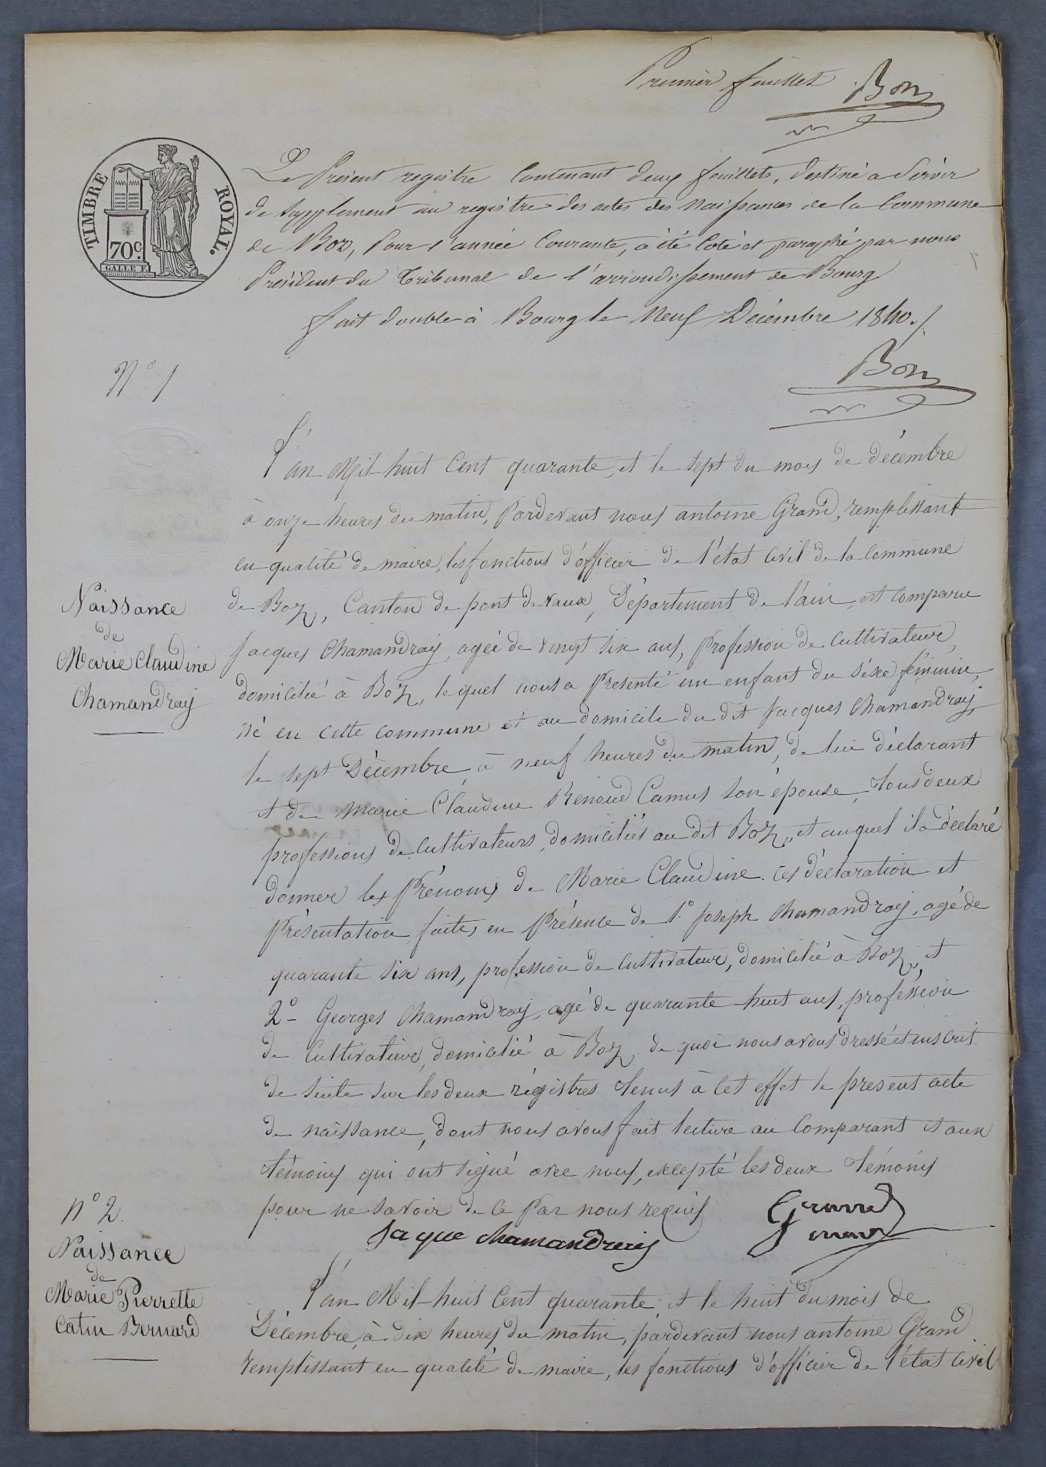 Premier feuillet Bon
TIMBRE ROYAL.
70c.
Le Présent registre Contenant deux feuillets, destiné a Servir
de Supplement au registre des actes des Naissances de la Commune
de Boz, Pour l'année Courante, a été Coté et paraphé par nous
Président du Tribunal de l'arrondissement de Bourg
fait double à Bourg le Neuf Décembre 1840./.
Bon
N° 1
Naissance
de
Marie Claudine
Chamandray
L'an Mil huit Cent quarante, et le sept du mois de décembre
à onze heures du matin, Pardevant nous antoine Grand, remplissant
en qualité de maire, les fonctions d'officier de l'état civil de la Commune
de Boz, Canton de pont de vaux, Département de l'ain, est Comparu
Jacques Chamandray, agée de vingt six ans, Profession de Cultivateur,
domicilié à Boz, lequel nous a Présenté un enfant du sixe féminin,
né en cette commune et au domicile du dit Jacques Chamandray,
le sept Décembre, à neuf heures du matin, de lui déclarant
et de Marie Claudine Renoud Camus son épouse, tous deux
professions de Cultivateurs, domiciliés au dit Boz, et auquel il a déclaré
donner les Prénoms de Marie Claudine. ces déclaration et
Présentation faites en Présence de 1° Joseph Chamandray, agé de
quarante six ans, profession de Cultivateur, domicilié à Boz, et
2° Georges Chamandray, agé de quarante huit ans, profession
de Cultivateur, domicilié à Boz, de quoi nous avons dressé et inscrit
de suite sur les deux régistres tenus à cet effet le present acte
de naissance, dont nous avons fait lecture au Comparant et aux
témoins qui ont signé avec nous, excepté les deux témoins
pour ne savoir de ce Par nous requis
Jaque Chamandray
Grand
N° 2.
Naissance
de
Marie Pierrette
Catin Bernard
L'an Mil huit Cent quarante et le huit du mois de
Décembre, à dix heures du matin, pardevant nous antoine Grand
remplissant en qualité de maire, les fonctions d'officier de l'état civil